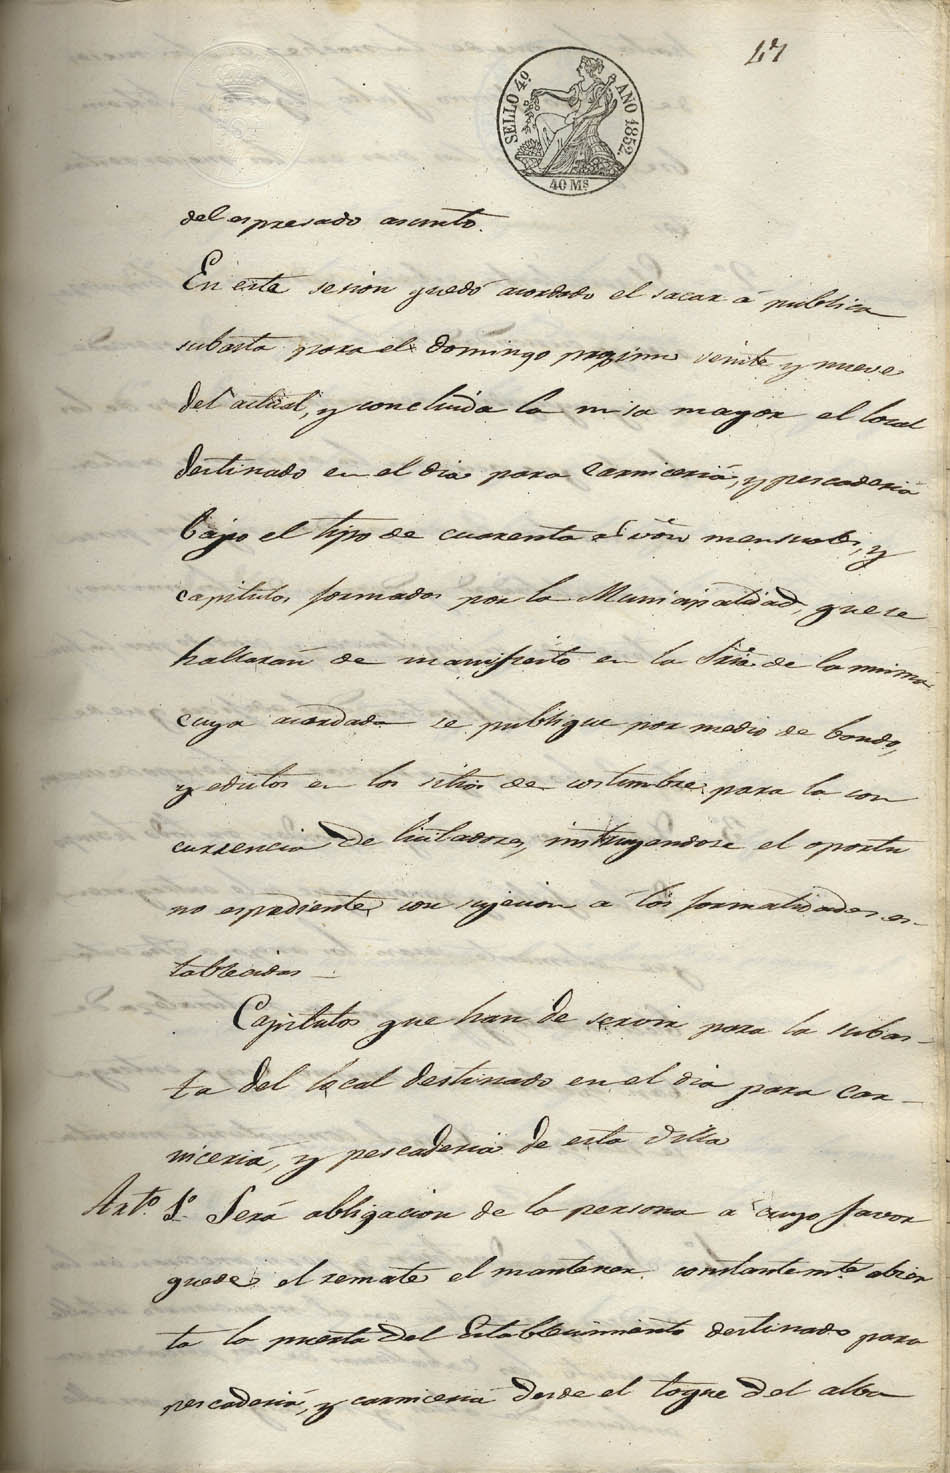 47
SELLO 4º AÑO 1852.
40 Ms
del espresado asunto.
En este sesion quedó acordado el sacar á publica
subasta para el domingo proximo veinte y nueve
del actual, y concluida la misa mayor el local
destinado en el dia para carniceria, y pescaderia
bajo el tipo de cuarenta rs von mensuales, y
capitulos formados por la Municipalidad, que se
hallarán de manifiesto en la Sria de la misma
cuya acordada se publique por medio de bando,
y edictos en los sitios de costumbre para la con
currencia de licitadores, instruyandose el oportu
no espediente con sujecion a los formalidades es-
tablecidas
Capitulos que han de servir para la subas-
ta del local destinado en el dia para car-
niceriá, y pescaderia de esta Villa
Arto. 1º Será obligacion de la persona a cuyo favor
quede el remate el mantener constantemte abier
ta la puerta del Establecimiento destinado para
pescaderiá, y carniceriá desde el toque del alba